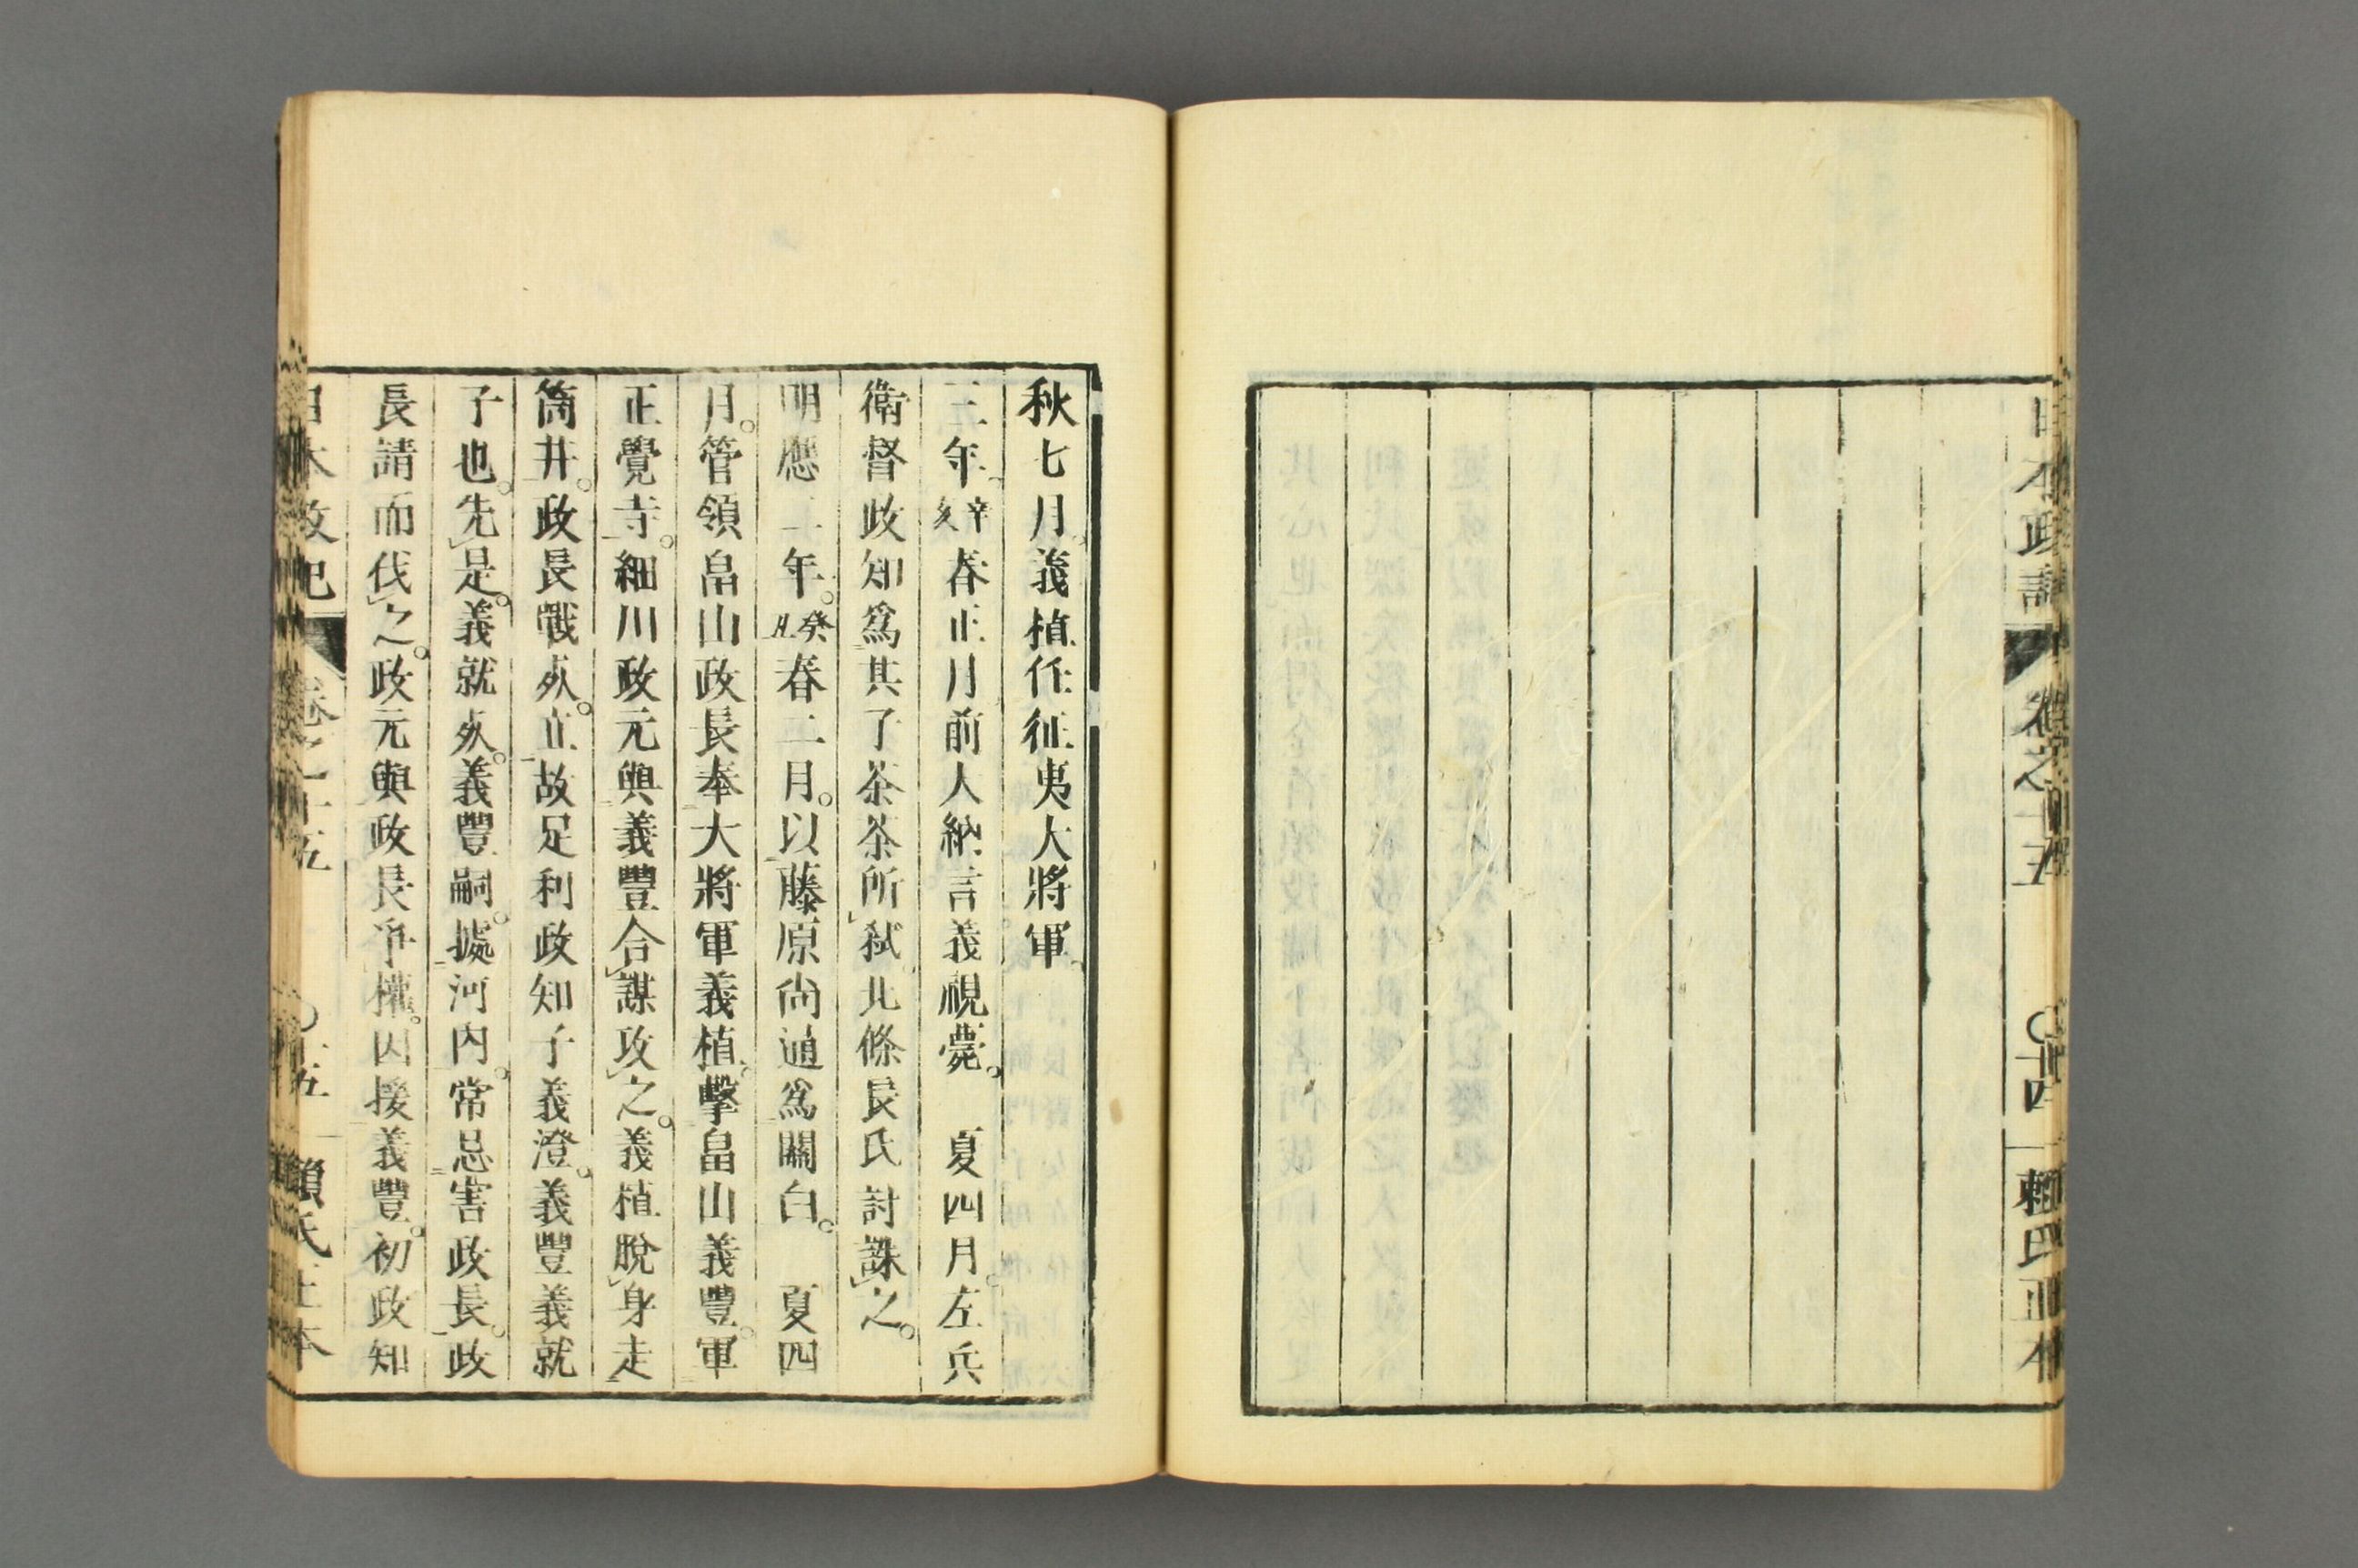 日本政記
卷之十五
〇十四
賴氏正本
秋七月。義植任征夷大將軍。
三年。辛亥春正月前大納言義視薨。　夏四月。左兵
衛督政知爲其子茶茶所弑。北條長氏討誅之。
明應二年。癸丑春二月。以藤原尚通爲關白。　夏四
月。管領畠山政長奉大將軍義植。擊畠山義豐。軍
正覺寺。細川政元與義豐合謀攻之。義植脫身走
筒井。政長戰死。立故足利政知子義澄。義豐義就
子也。先是。義就死。義豐嗣。據河内。常忌害政長。政
長請而伐之。政元與政長爭權。因援義豐。初政知
日本政記
卷之十五
〇十五
賴氏正本